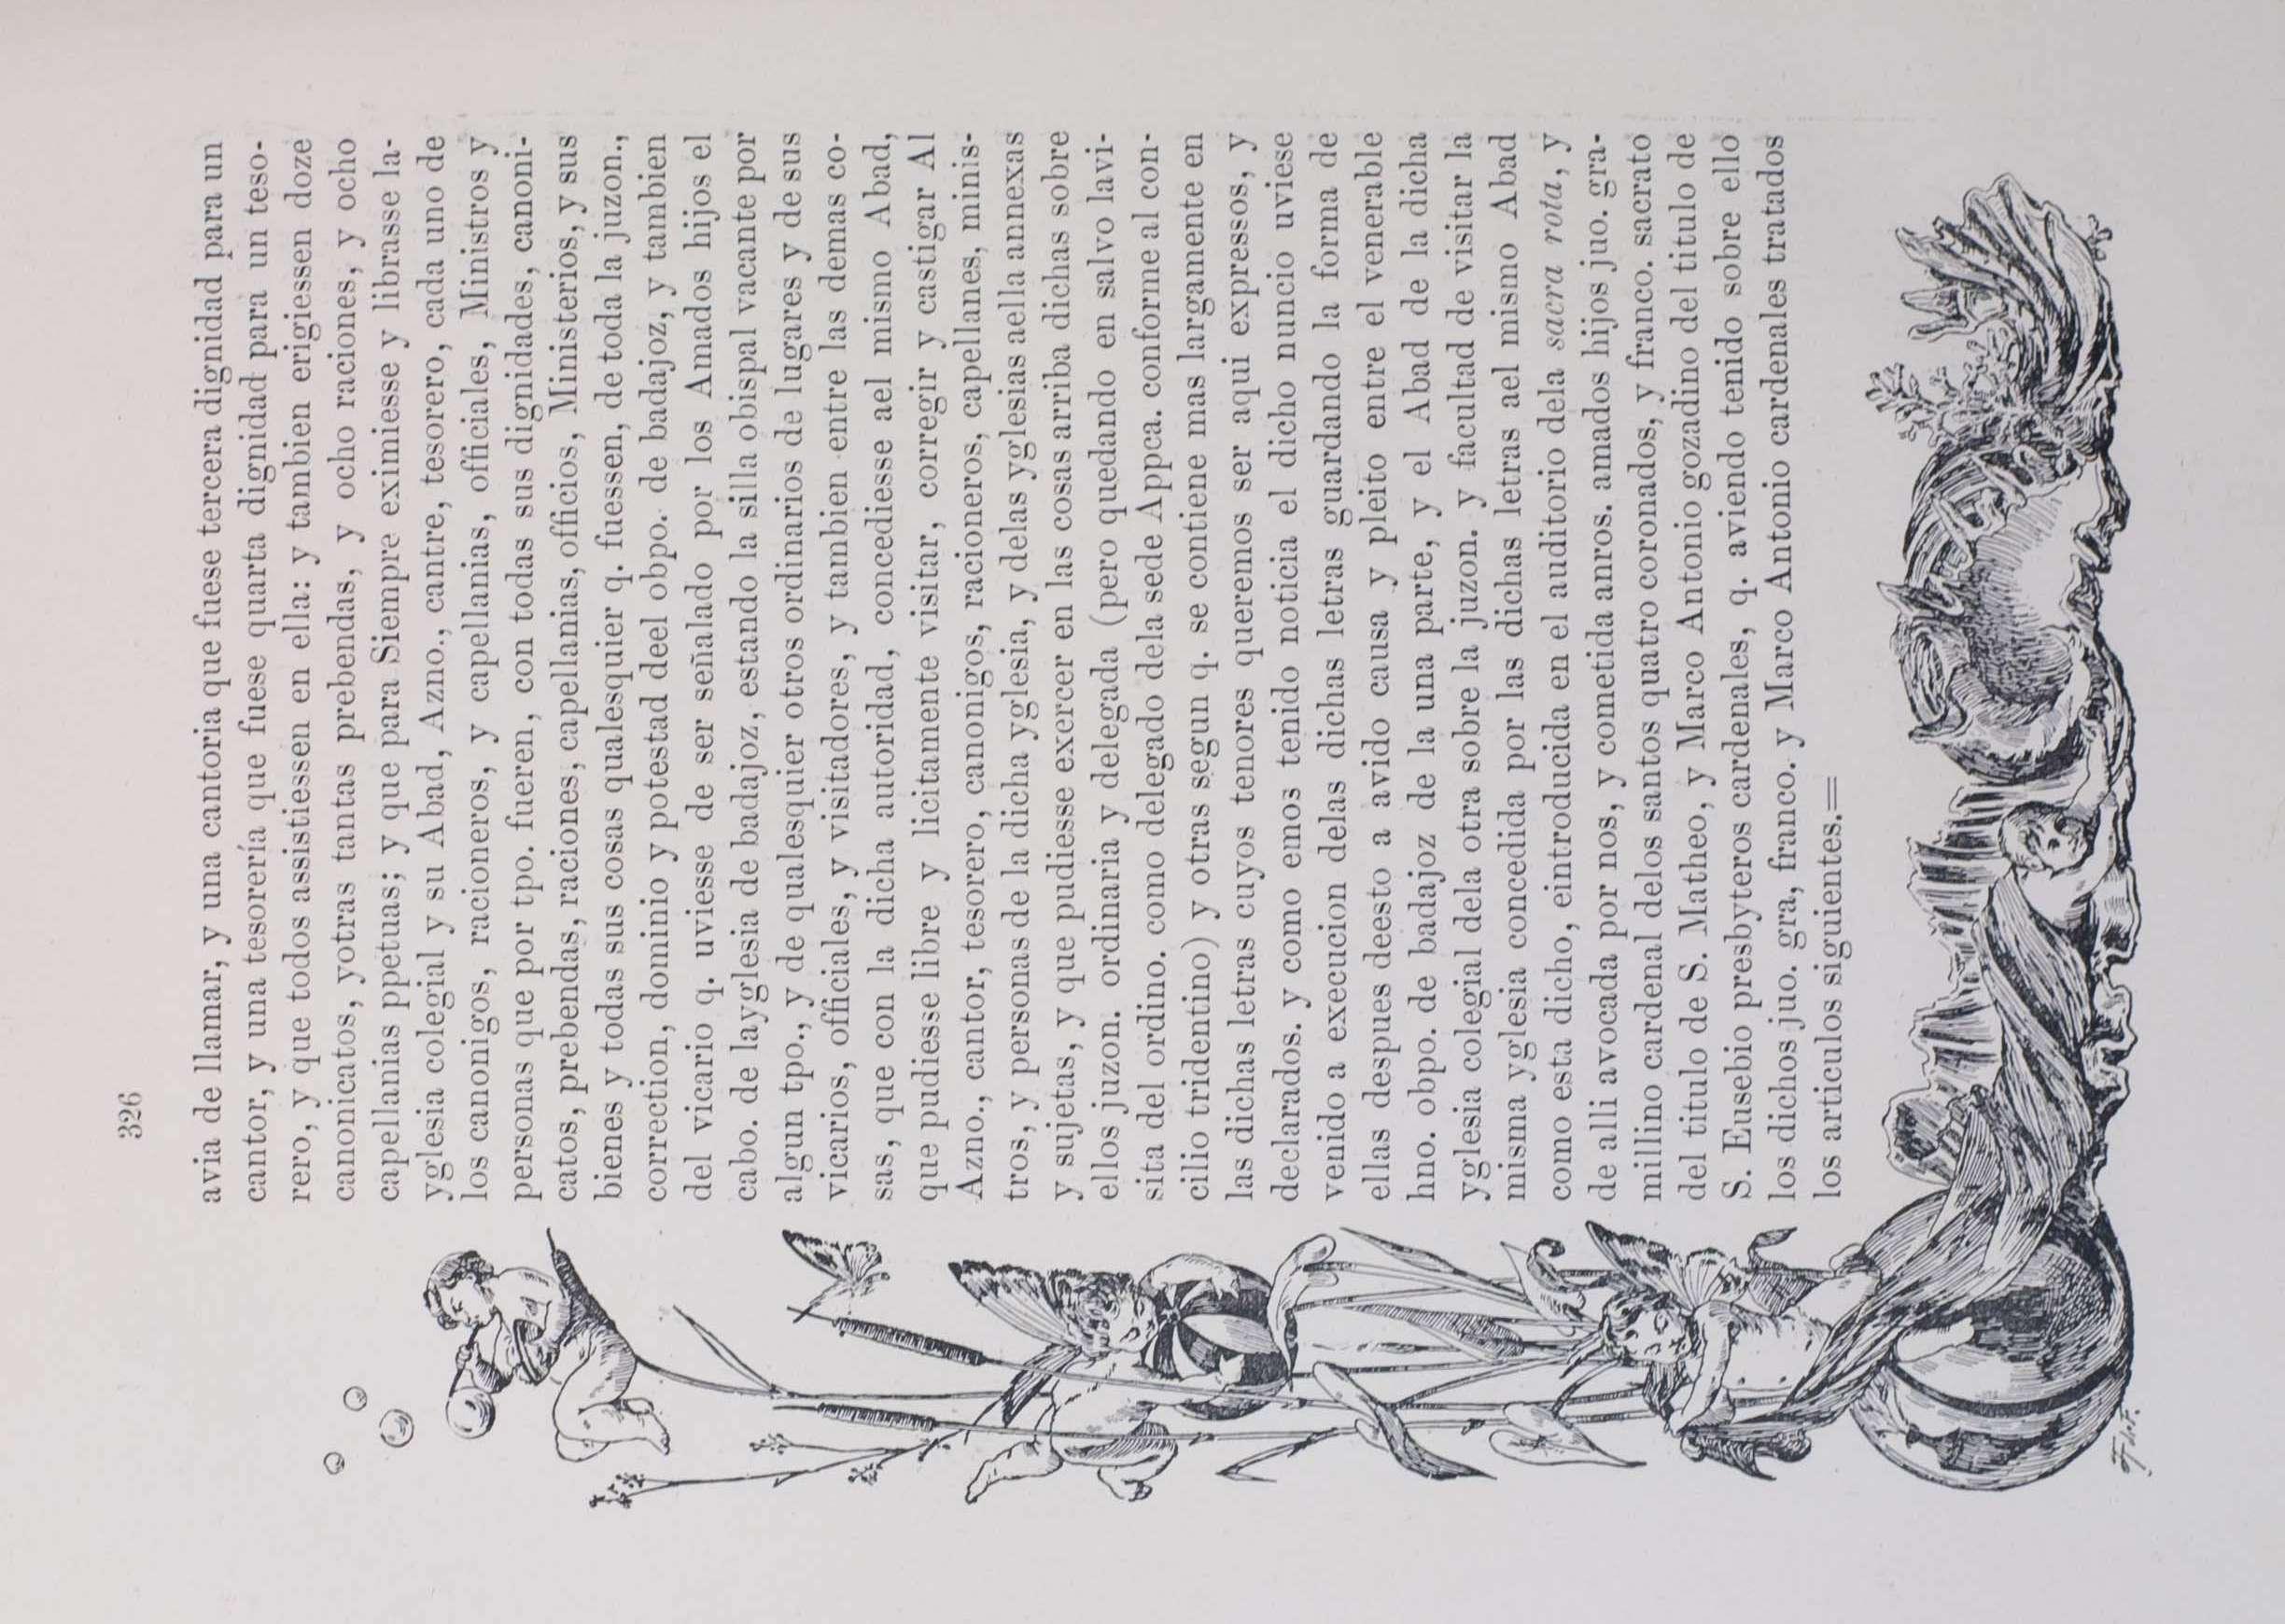 326
avia de llamar, y una cantoria que fuese tercera dignidad para un
cantor, y una tesorería que fuese quarta dignidad para un teso-
rero, y que todos assistiessen en ella: y tambien erigiessen doze
canonicatos, yotras tantas prebendas, y ocho raciones, y ocho
capellanias ppetuas; y que para Siempre eximiesse y librasse la-
yglesia colegial y su Abad, Azno., cantre, tesorero, cada uno de
los canonigos, racioneros, y capellanias, officiales, Ministros y
personas que por tpo. fueren, con todas sus dignidades, canoni-
catos, prebendas, raciones, capellanias, officios, Ministerios, y sus
bienes y todas sus cosas qualesquier q. fuessen, de toda la juzon.,
correction, dominio y potestad deel obpo. de badajoz, y tambien
del vicario q. uviesse de ser señalado por los Amados hijos el
cabo. de layglesia de badajoz, estando la silla obispal vacante por
algun tpo., y de qualesquier otros ordinarios de lugares y de sus
vicarios, officiales, y visitadores, y tambien entre las demas co-
sas, que con la dicha autoridad, concediesse ael mismo Abad,
que pudiesse libre y licitamente visitar, corregir y castigar Al
Azno., cantor, tesorero, canonigos, racioneros, capellanes, minis-
tros, y personas de la dicha yglesia, y delas yglesias aella annexas
y sujetas, y que pudiesse exercer en las cosas arriba dichas sobre
ellos juzon. ordinaria y delegada (pero quedando en salvo lavi-
sita del ordino. como delegado dela sede Appca. conforme al con-
cilio tridentino) y otras segun q. se contiene mas largamente en
las dichas letras cuyos tenores queremos ser aqui expressos, y
declarados. y como emos tenido noticia el dicho nuncio uviese
venido a execucion delas dichas letras guardando la forma de
ellas despues deesto a avido causa y pleito entre el venerable
hno. obpo. de badajoz de la una parte, y el Abad de la dicha
yglesia colegial dela otra sobre la juzon. y facultad de visitar la
misma yglesia concedida por las dichas letras ael mismo Abad
como esta dicho, eintroducida en el auditorio dela sacra rota, y
de alli avocada por nos, y cometida anros. amados hijos juo. gra-
millino cardenal delos santos quatro coronados, y franco. sacrato
del titulo de S. Matheo, y Marco Antonio gozadino del titulo de
S. Eusebio presbyteros cardenales, q. aviendo tenido sobre ello
los dichos juo. gra, franco. y Marco Antonio cardenales tratados
los articulos siguientes.=